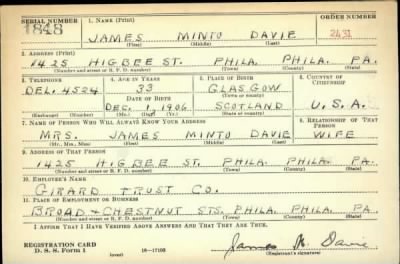 SERIAL NUMBER 1. NAME (Print) ORDER NUMBER
1848 JAMES MINTO DAVIE 2431
(First) (Middle) (Last)
2. ADDRESS (Print)
1425 HIGBEE ST. PHILA. PHILA. PA.
(Number and street or R. F. D. number) (Town) (County) (State)
3. TELEPHONE 4. AGE IN YEARS 5. PLACE OF BIRTH 6. COUNTRY OF CITIZENSHIP
DEL. 4524 33 GLASGOW
DATE OF BIRTH (Town or county)
DEC. 1, 1906 SCOTLAND U.S.A.
(Exchange) (Number) (Mo.) (Day) (Yr.) (State or country)
7. NAME OF PERSON WHO WILL ALWAYS KNOW YOUR ADDRESS 8. RELATIONSHIP OF THAT PERSON
MRS. JAMES MINTO DAVIE WIFE
(Mr., Mrs., Miss) (First) (Middle) (Last)
9. ADDRESS OF THAT PERSON
1425 HIGBEE ST. PHILA. PHILA. PA.
(Number and street or R. F. D. number) (Town) (County) (State)
10. EMPLOYER'S NAME
GIRARD TRUST CO.
11. PLACE OF EMPLOYMENT OR BUSINESS
BROAD & CHESTNUT STS. PHILA. PHILA. PA.
(Number and street or R. F. D. number) (Town) (County) (State)
I AFFIRM THAT I HAVE VERIFIED ABOVE ANSWERS AND THAT THEY ARE TRUE.
REGISTRATION CARD
D. S. S. Form 1 (over) 16—17105 James M. Davie
(Registrant's signature)